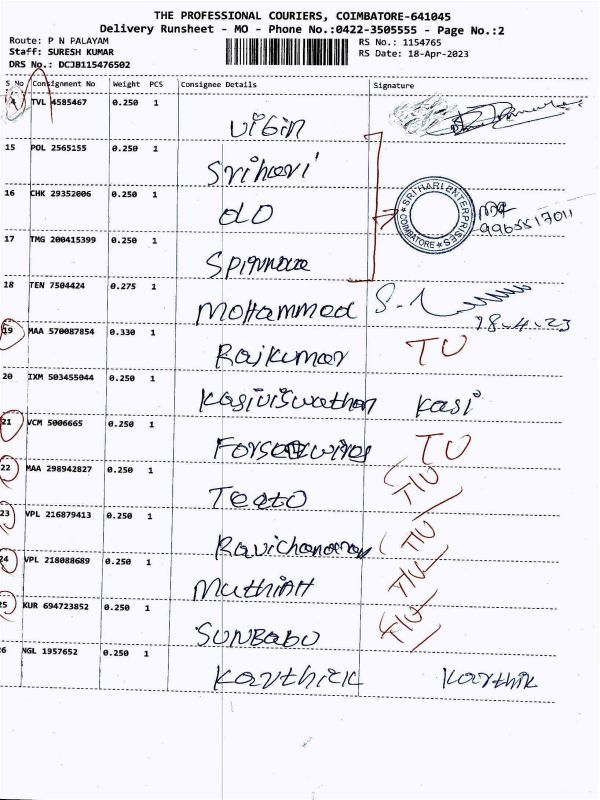 THE PROFESSIONAL COURIERS, COIMBATORE-641045
Delivery Runsheet - MO - Phone No.:0422-3505555 - Page No.:2
Route: P N PALAYAM
RS No.: 1154765
Staff: SURESH KUMAR
RS Date: 18-Apr-2023
DRS No.: DCJB115476502
S No Consignment No Weight PCS Consignee Details Signature
TVL 4585467 0.250 1
Vibin
15 POL 2565155 0.250 1
Srihari
16 CHK 29352006 0.250 1
dO
SRI HARI ENTERPRISES
COIMBATORE
9965517011
17 TMG 200415399 0.250 1
18 TEN 7504424 0.275 1
Mohammed
18.4.23
19 MAA 570087854 0.330 1
Rajkumar TU
20 IXM 503455044 0.250 1
Kasiviswathan Kasi
21 VCM 5006665 0.250 1
TU
22 MAA 298942827 0.250 1
T/U
23 VPL 216879413 0.250 1
Ravichandran T/U
24 VPL 218088689 0.250 1
Muthiah T/U
25 KUR 694723852 0.250 1
SUNBABU T/U
26 NGL 1957652 0.250 1
Karthick Karthik